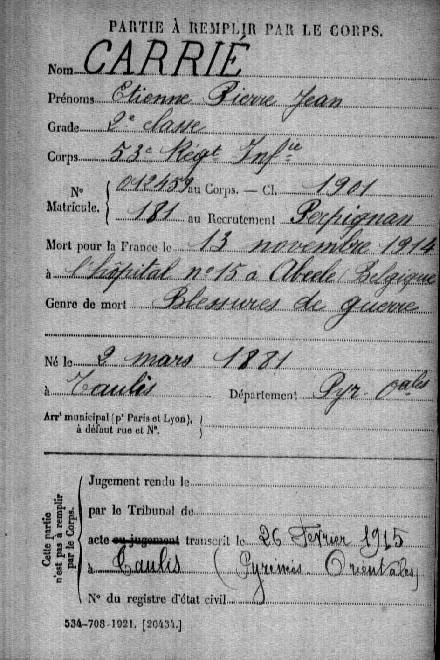 PARTIE À REMPLIR PAR LE CORPS.
Nom CARRIÉ
Prénoms Etienne Pierre Jean
Grade 2e classe
Corps 53e Régt Infie
N° Matricule. 012459 au Corps. — Cl. 1901
181 au Recrutement Perpignan
Mort pour la France le 13 novembre 1914
à l'hôpital n° 15 à Abeele (Belgique
Genre de mort Blessures de guerre
Né le 2 mars 1881
à Taulis Département Pyr. Oales
Arrt municipal (pr Paris et Lyon), à défaut rue et N°.
Cette partie n'est pas à remplir par le Corps.
Jugement rendu le
par le Tribunal de
acte ou jugement transcrit le 26 Février 1915
à Taulis (Pyrénées Orientales)
N° du registre d'état civil
534-708-1921. [26434.]